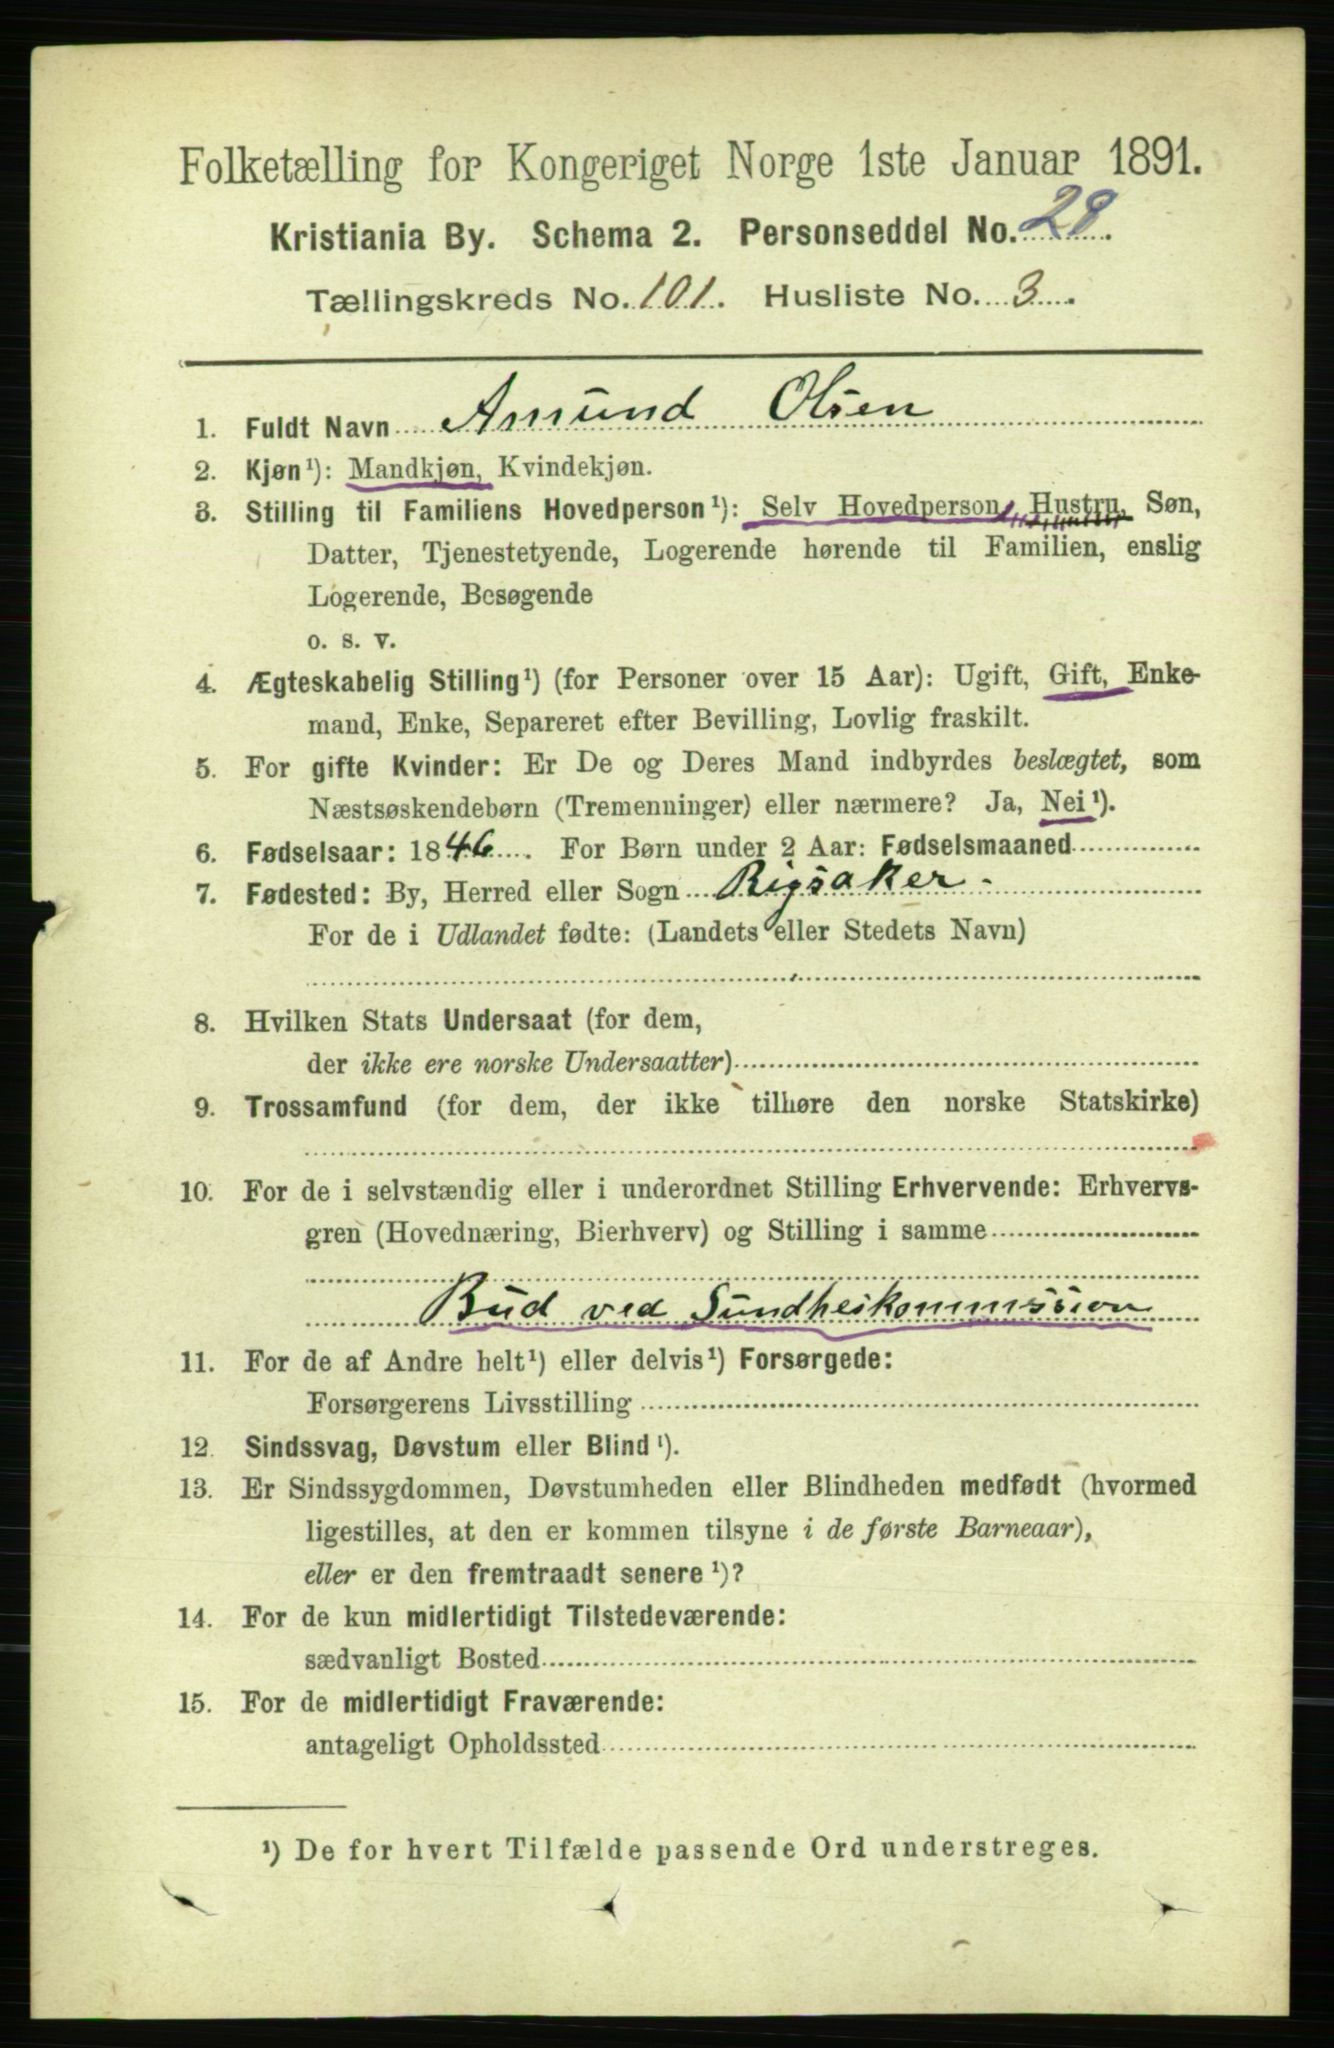 Folketælling for Kongeriget Norge 1ste Januar 1891.
Kristiania By. Schema 2. Personseddel No. 28.
Tællingskreds No. 101. Husliste No. 3.
1. Fuldt Navn Amund Olsen
2. Kjøn¹): Mandkjøn, Kvindekjøn.
3. Stilling til Familiens Hovedperson¹): Selv Hovedperson, Hustru, Søn,
Datter, Tjenestetyende, Logerende hørende til Familien, enslig
Logerende, Besøgende
o. s. v.
4. Ægteskabelig Stilling¹) (for Personer over 15 Aar): Ugift, Gift, Enke-
mand, Enke, Separeret efter Bevilling, Lovlig fraskilt.
5. For gifte Kvinder: Er De og Deres Mand indbyrdes beslægtet, som
Næstsøskendebørn (Tremenninger) eller nærmere? Ja, Nei¹).
6. Fødselsaar: 1846. For Børn under 2 Aar: Fødselsmaaned
7. Fødested: By, Herred eller Sogn Rigsaker -
For de i Udlandet fødte: (Landets eller Stedets Navn)
8. Hvilken Stats Undersaat (for dem,
der ikke ere norske Undersaatter)
9. Trossamfund (for dem, der ikke tilhøre den norske Statskirke)
10. For de i selvstændig eller i underordnet Stilling Erhvervende: Erhvervs-
gren (Hovednæring, Bierhverv) og Stilling i samme
Bud ved Sundheskommssion
11. For de af Andre helt¹) eller delvis¹) Forsørgede:
Forsørgerens Livsstilling
12. Sindssvag, Døvstum eller Blind¹).
13. Er Sindssygdommen, Døvstumheden eller Blindheden medfødt (hvormed
ligestilles, at den er kommen tilsyne i de første Barneaar),
eller er den fremtraadt senere¹)?
14. For de kun midlertidigt Tilstedeværende:
sædvanligt Bosted
15. For de midlertidigt Fraværende:
antageligt Opholdssted
¹) De for hvert Tilfælde passende Ord understreges.